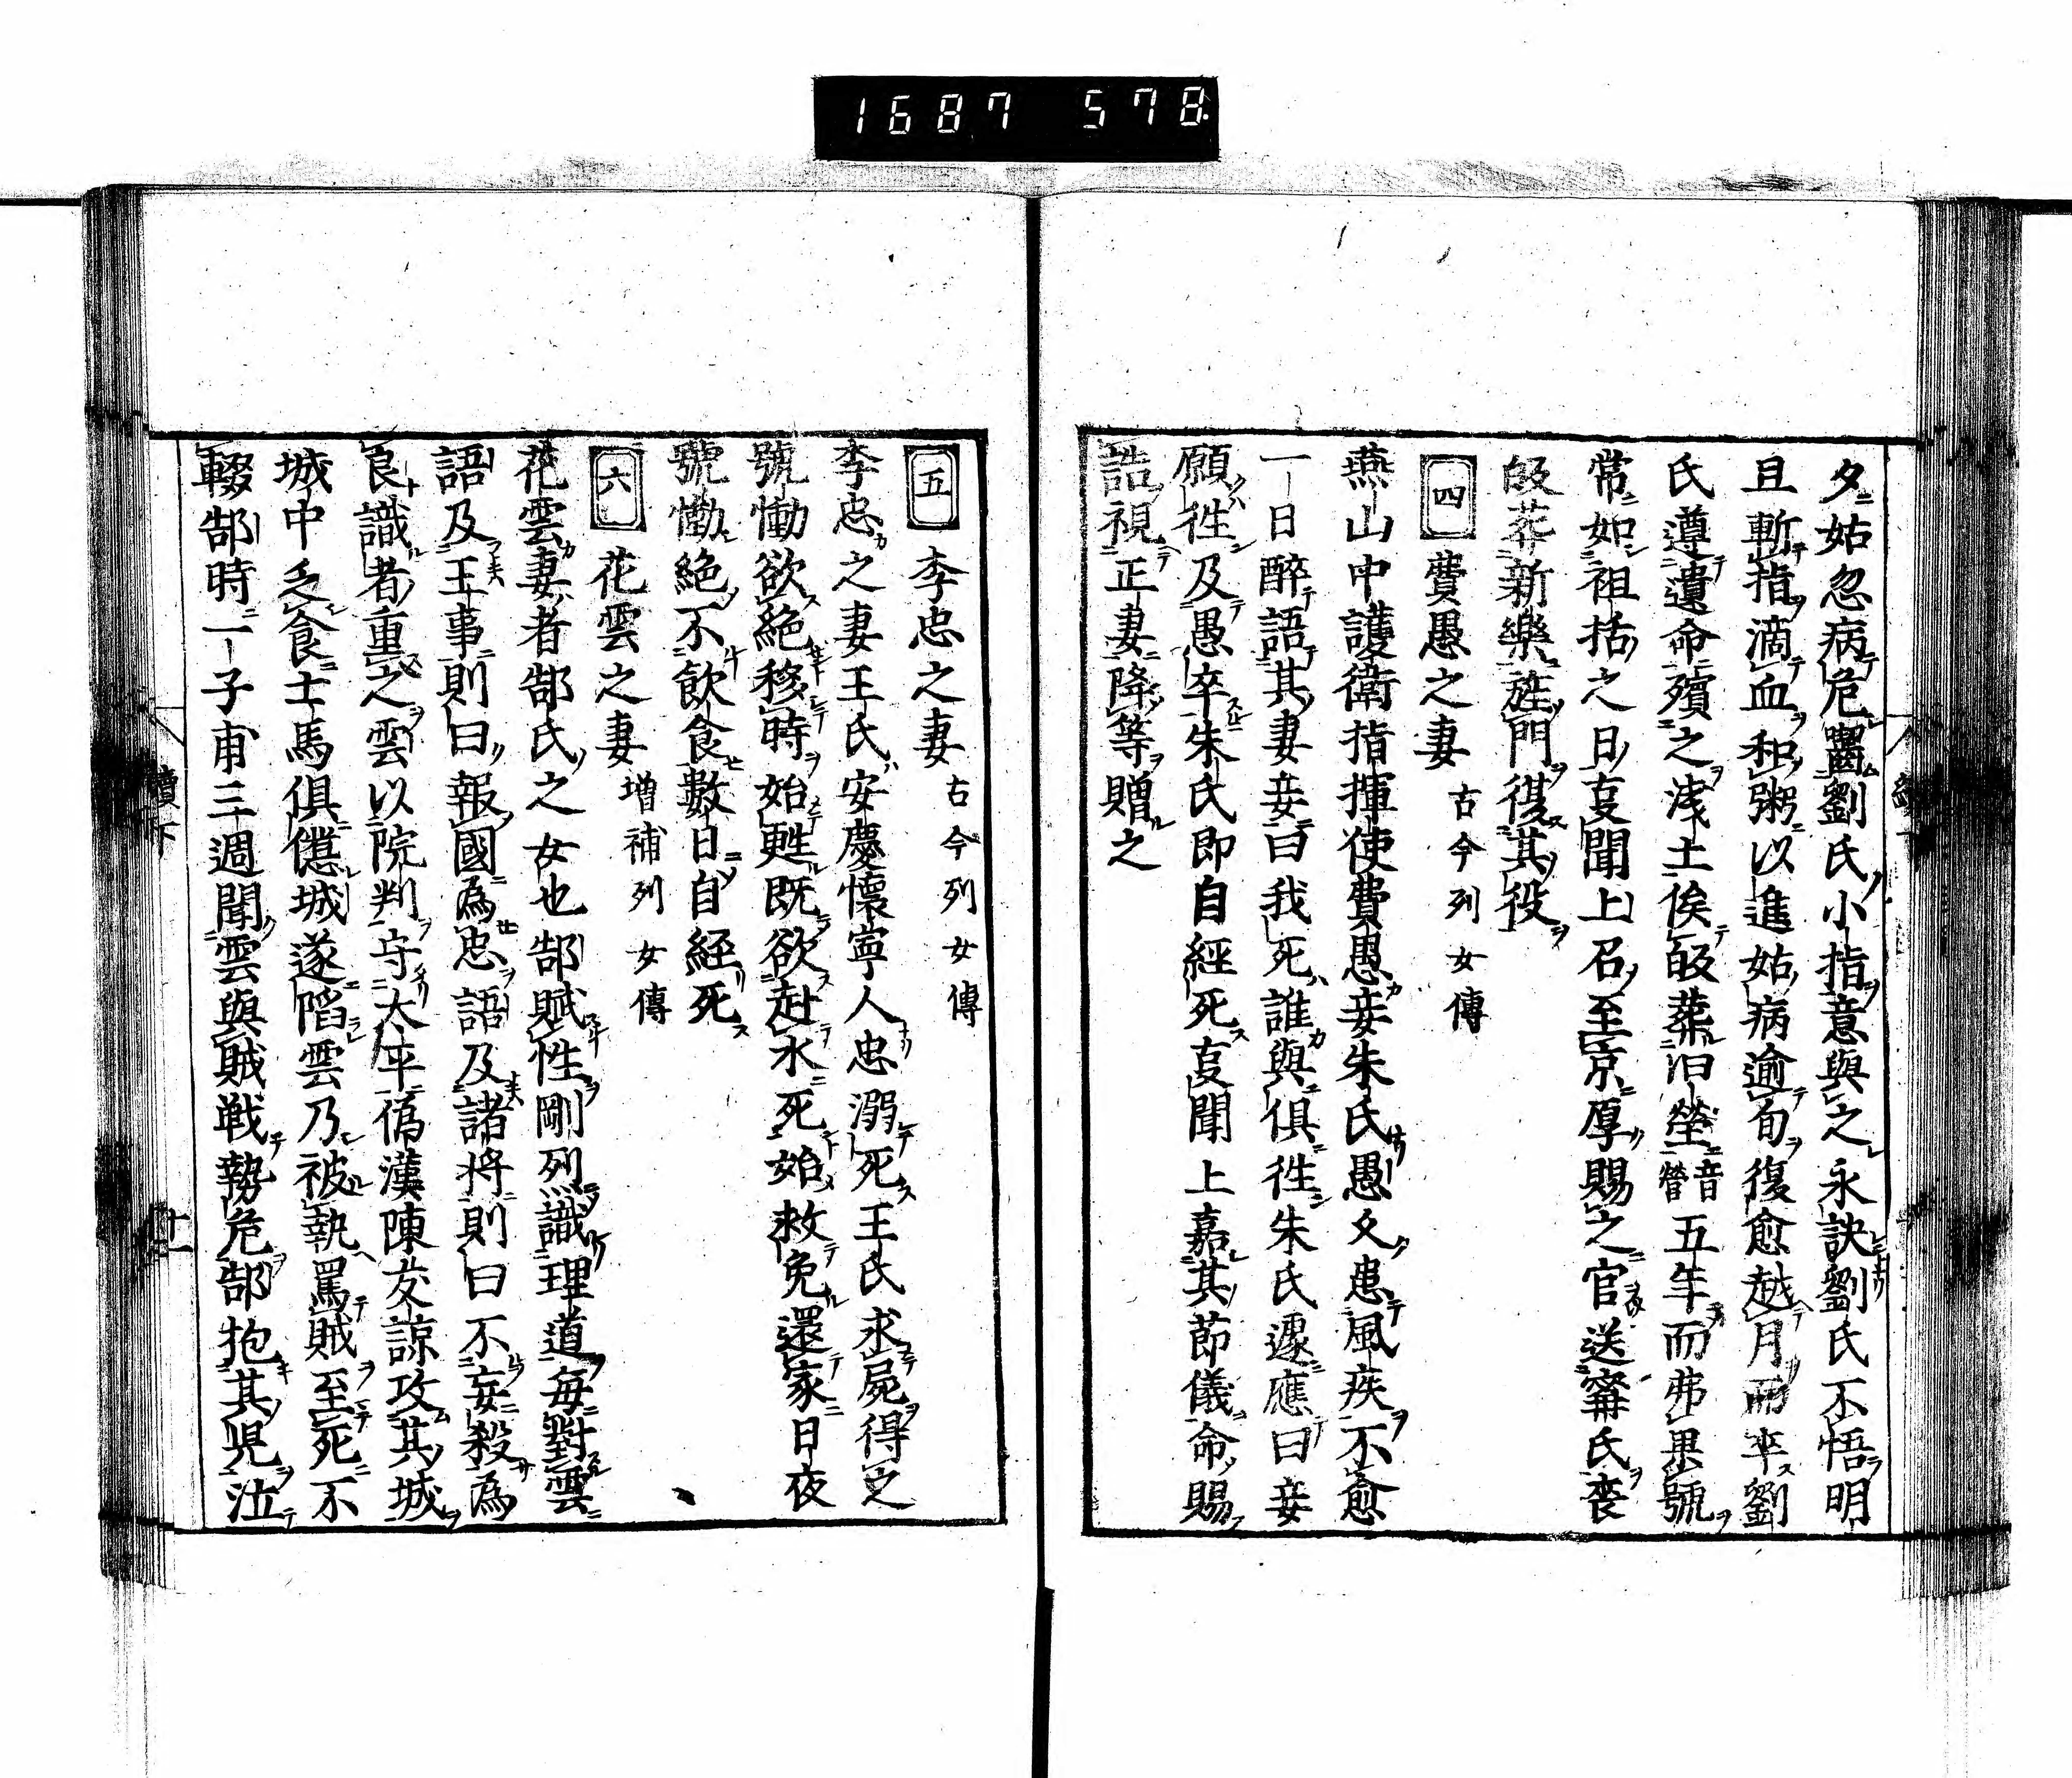 1687 578
夕姑忽病危囓劉氏小指意與之永訣劉氏不悟明
旦斬指滴血和粥以進姑病逾旬復愈越月而卒劉
氏遵遺命殯之浅土俟皈葬旧塋音營五年而弗果號
常如祖括之日夏聞上召至京厚賜之官送甯氏喪
皈葬新樂旌門復其役
四 費愚之妻 古今列女傳
燕山中護衛指揮使費愚妾朱氏愚久患風疾不愈
一日醉語其妻妾曰我死誰與俱徃朱氏遽應曰妾
願徃及愚卒朱氏即自經死夏聞上嘉其節儀命賜
誥視正妻降等贈之
五 李忠之妻 古今列女傳
李忠之妻王氏安慶懷寧人忠溺死王氏求屍得之
號慟欲絶移時始甦既欲赴水死始救免還家日夜
號慟絶不飲食數日自経死
六 花雲之妻 増補列女傳
花雲妻者郜氏之女也郜賦性剛烈識理道毎對雲
語及王事則曰報國為忠語及諸将則曰不妄殺為
良識者重之雲以院判守大平偽漢陳友諒攻其城
城中乏食士馬俱憊城遂陷雲乃被執罵賊至死不
輟郜時一子甫三週聞雲與賊戦勢危郜抱其児泣
續下
廿一